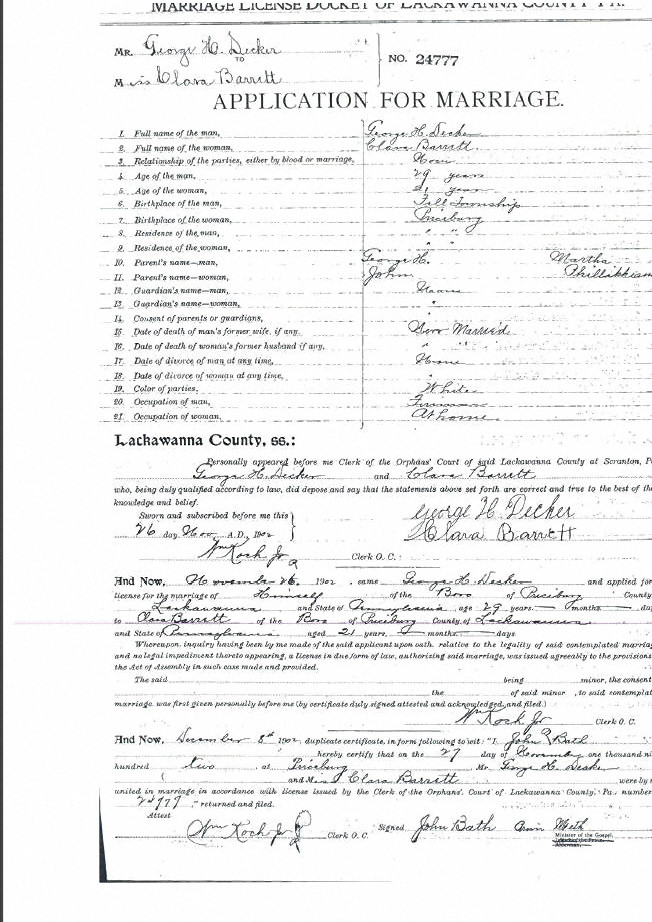 MARRIAGE LICENSE DOCKET OF LACKAWANNA COUNTY PA.
MR. George H. Decker
TO
Miss Clara Barrett
NO. 24777
APPLICATION FOR MARRIAGE.
1. Full name of the man, George H. Decker
2. Full name of the woman, Clara Barrett.
3. Relationship of the parties, either by blood or marriage, None
4. Age of the man, 29 years
5. Age of the woman, 21 years
6. Birthplace of the man, Fell Township
7. Birthplace of the woman, Priceburg
8. Residence of the man, " "
9. Residence of the woman, " "
10. Parent's name—man, George H. Martha
11. Parent's name—woman, John
12. Guardian's name—man, None
13. Guardian's name—woman, "
14. Consent of parents or guardians,
15. Date of death of man's former wife, if any. Never Married
16. Date of death of woman's former husband if any, " "
17. Date of divorce of man at any time, None
18. Date of divorce of woman at any time, "
19. Color of parties, White
20. Occupation of man, Fireman
21. Occupation of woman, At home
Lackawanna County, ss.:
Personally appeared before me Clerk of the Orphans' Court of said Lackawanna County at Scranton, P
George H. Decker and Clara Barrett
who, being duly qualified according to law, did depose and say that the statements above set forth are correct and true to the best of the
knowledge and belief.
Sworn and subscribed before me this
26 day Nov A.D., 1902
George H Decker
Clara Barrett
Wm Koch Jr Clerk O. C.
And Now, November 26, 1902, came George H. Decker and applied for
license for the marriage of Himself of the Boro of Priceburg County
Lackawanna and State of Pennsylvania age 29 years. — months — da
to Clara Barrett of the Boro of Priceburg County of Lackawanna
and State of Pennsylvania aged 21 years, — months — days
Whereupon, inquiry having been by me made of the said applicant upon oath, relative to the legality of said contemplated marria
and no legal impediment thereto appearing, a license in due form of law, authorizing said marriage, was issued agreeably to the provisions
the Act of Assembly in such case made and provided.
The said being minor, the consent
the of said minor, to said contemplat
marriage, was first given personally before me (by certificate duly signed attested and acknowledged, and filed.)
Wm Koch Jr Clerk O. C.
And Now, December 8th 1902, duplicate certificate, in form following to wit: "I, John Bath
hereby certify that on the 27 day of November one thousand ni
hundred two, at Priceburg Mr. George H. Decker
and Miss Clara Barrett were by
united in marriage in accordance with license issued by the Clerk of the Orphans' Court of Lackawanna County, Pa., number
24777 " returned and filed.
Attest
Wm Koch Jr Clerk O. C. Signed John Bath Meth
Minister of the Gospel,